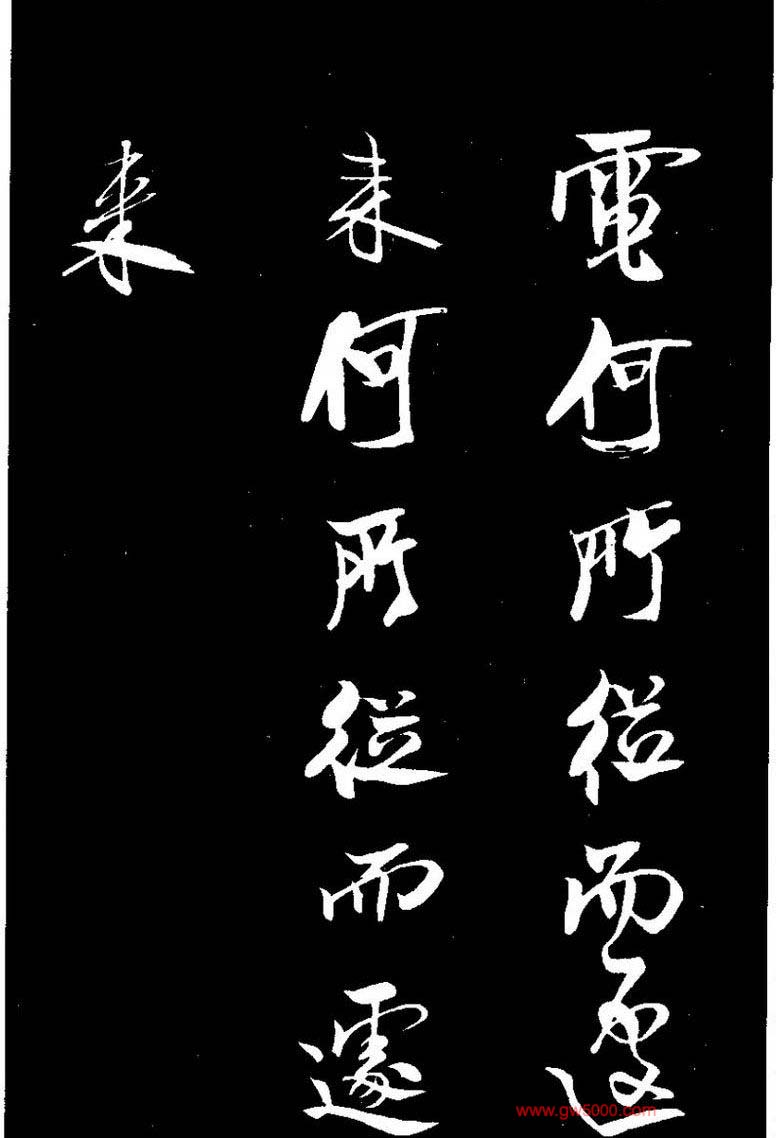 電何所從而遽
来何所從而遽
来
www.gw5000.com